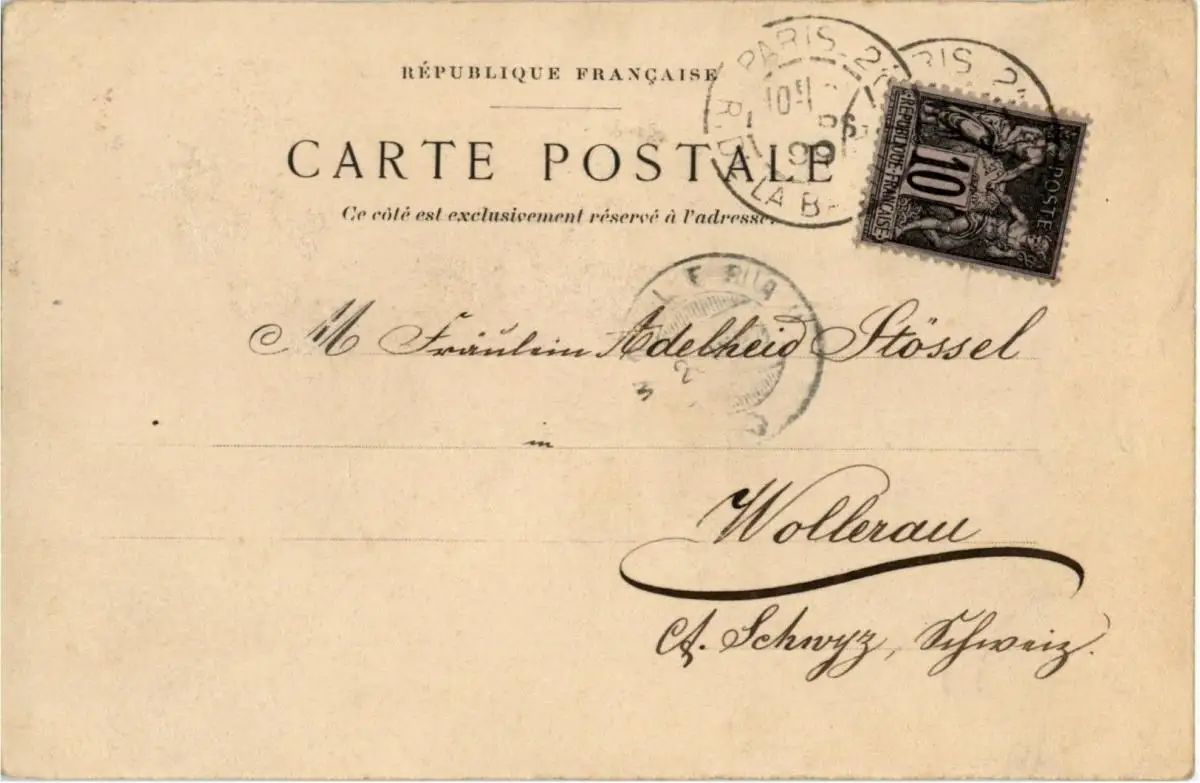 RÉPUBLIQUE FRANÇAISE
CARTE POSTALE
Ce côté est exclusivement réservé à l'adresse.
PARIS
99
LA B
RIS
REPUBLIQUE FRANÇAISE
10
POSTES
M Fräulein Adelheid Stössel
in
Wollerau
Ct. Schwyz, Schweiz.